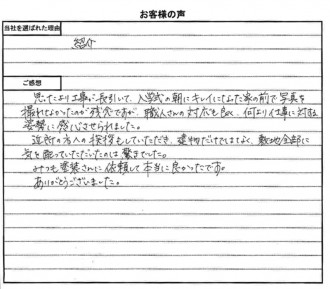 お客様の声
当社を選ばれた理由
紹介
ご感想
思ったより工事が長引いて、入学式の朝にキレイになった家の前で写真を
撮れなかったのが残念ですが、職人さんの対応も良く、何より仕事に対する
姿勢に感心させられました。
近所の方への挨拶もしていただき、建物だけでなく、敷地全部に
気を配っていただいたのは驚きでした。
みつも塗装さんに依頼して本当に良かったです。
ありがとうございました。